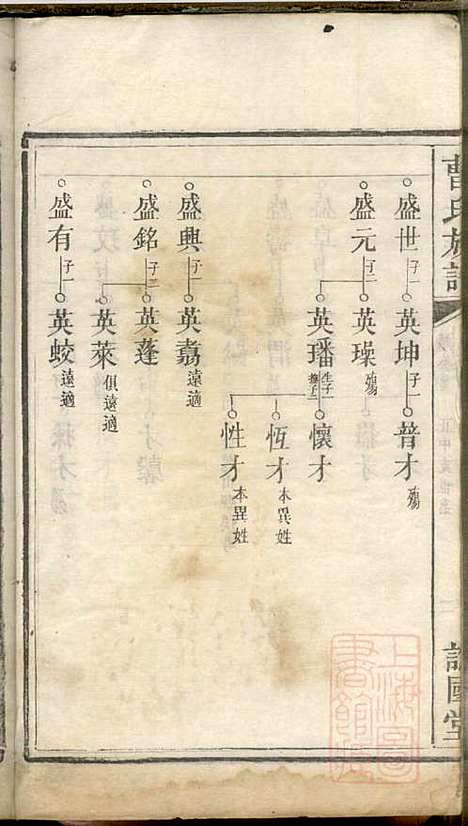 曹氏族譜
譜國堂
盛世 子一 英坤 子一 普才 殤
盛元 子二 英璪 殤
英璠 生子一 撫子二 懷才
恆才 本異姓
性才 本異姓
盛興 子一 英翥 遠適
盛銘 子二 英蓬
英萊 俱遠適
盛有 子一 英蛟 遠適
上海圖書館藏